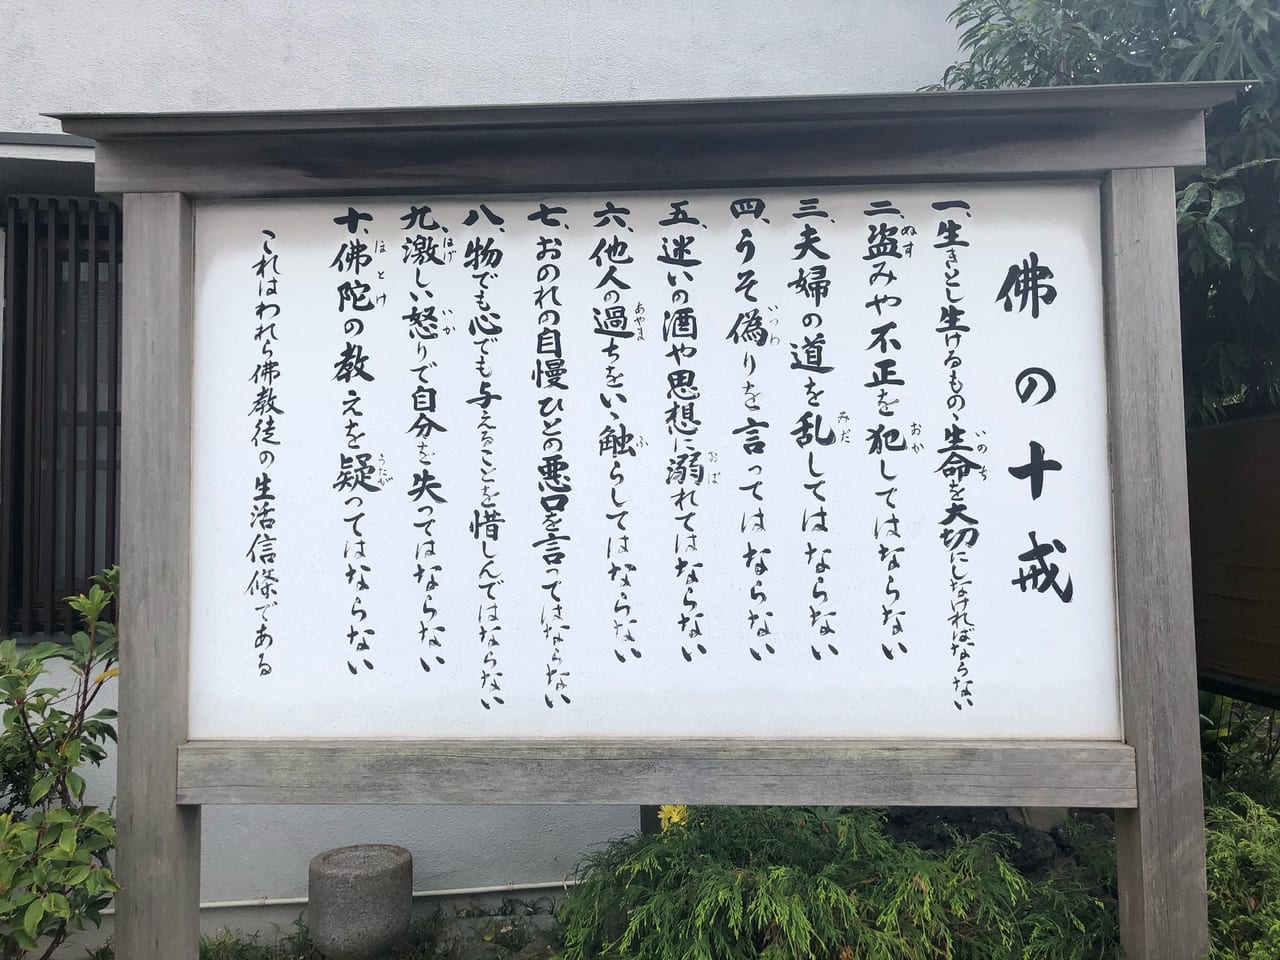 佛の十戒
一、生きとし生けるもの、生命を大切にしなければならない
二、盗みや不正を犯してはならない
三、夫婦の道を乱してはならない
四、うそ偽りを言ってはならない
五、迷いの酒や思想に溺れてはならない
六、他人の過ちをいゝ触らしてはならない
七、おのれの自慢ひとの悪口を言ってはならない
八、物でも心でも与えることを惜しんではならない
九、激しい怒りで自分を失ってはならない
十、佛陀の教えを疑ってはならない
これはわれら佛教徒の生活信條である